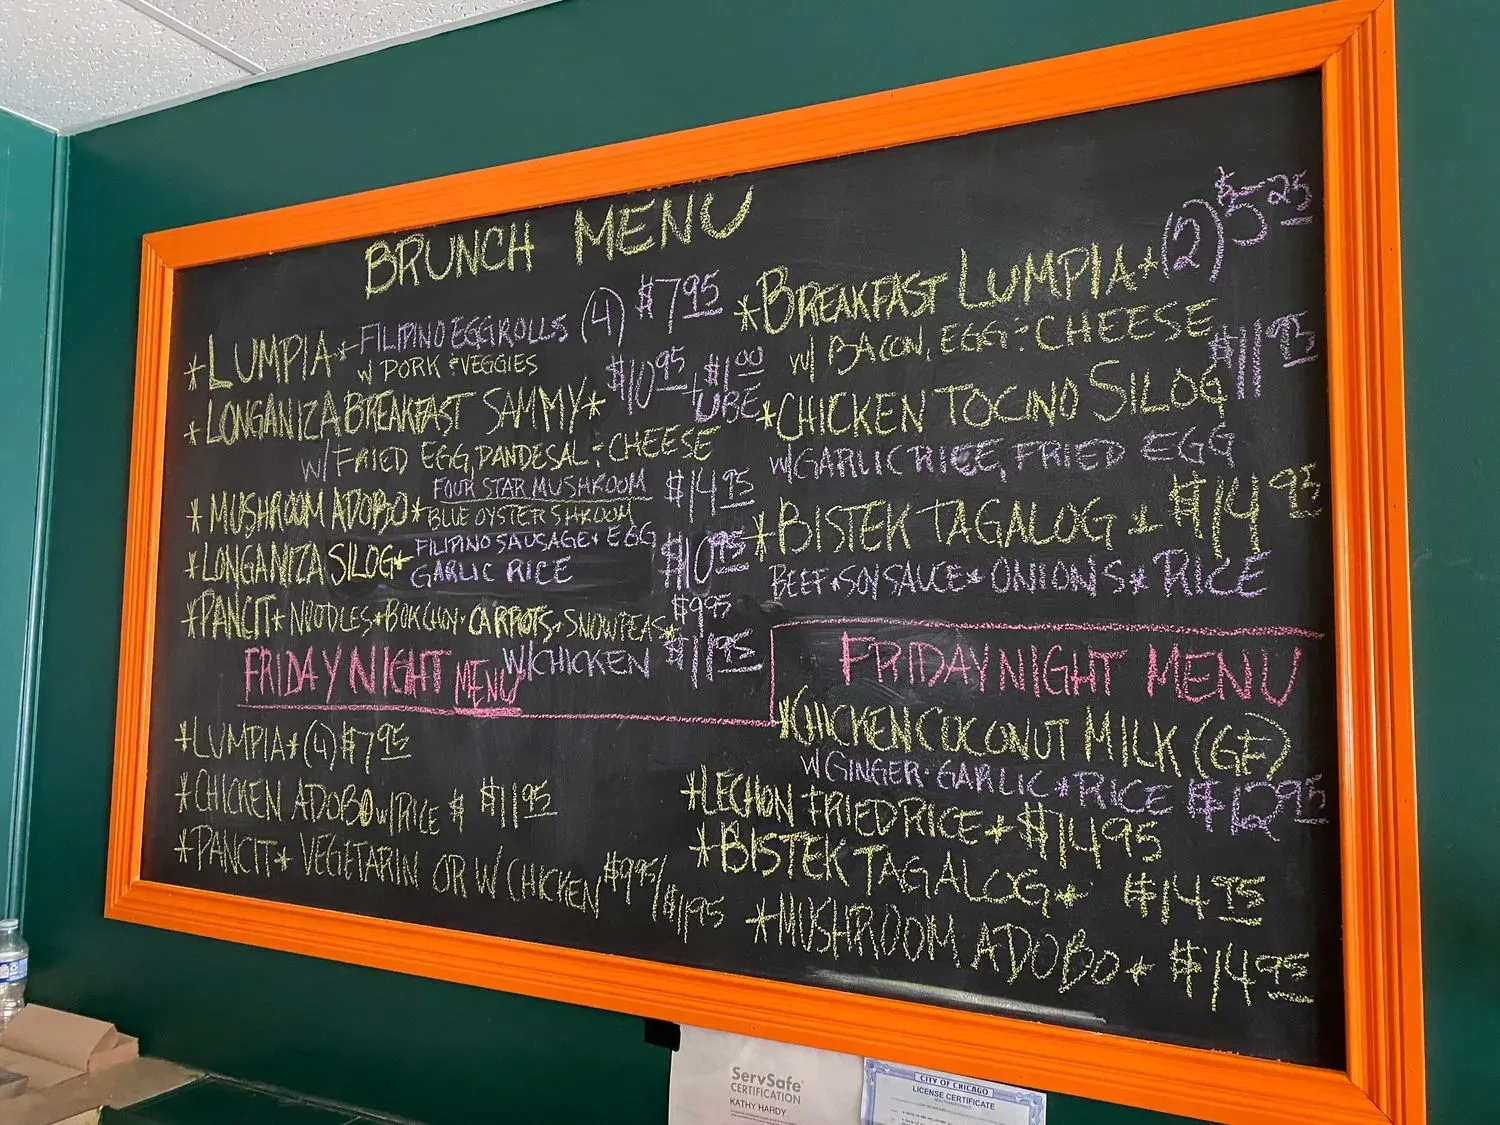 BRUNCH MENU
*LUMPIA* FILIPINO EGGROLLS (4) $7.95
W/ PORK & VEGGIES
*LONGANIZA BREAKFAST SAMMY* $10.95 + $1.00 UBE
W/ FRIED EGG, PANDESAL & CHEESE
*MUSHROOM ADOBO* FOUR STAR MUSHROOM $14.95
BLUE OYSTER SHROOM
*LONGANIZA SILOG* FILIPINO SAUSAGE + EGG $10.95
GARLIC RICE
*PANCIT* NOODLES + BOK CHOY · CARROTS · SNOWPEAS* $9.95
W/CHICKEN $11.95
*BREAKFAST LUMPIA* (2) $5.25
W/ BACON, EGG & CHEESE
*CHICKEN TOCINO SILOG $11.95
W/GARLIC RICE, FRIED EGG
*BISTEK TAGALOG + $14.95
BEEF * SOY SAUCE * ONIONS * RICE
FRIDAY NIGHT MENU
*LUMPIA* (4) $7.95
*CHICKEN ADOBO W/RICE $ $11.95
*PANCIT* VEGETARIN OR W/ CHICKEN $9.95/ $11.95
FRIDAY NIGHT MENU
*CHICKEN COCONUT MILK (GF)
W/GINGER · GARLIC * RICE $12.95
*LECHON FRIED RICE * $14.95
*BISTEK TAGALOG * $14.75
*MUSHROOM ADOBO * $14.95
ServSafe
CERTIFICATION
KATHY HARDY
CITY OF CHICAGO
LICENSE CERTIFICATE